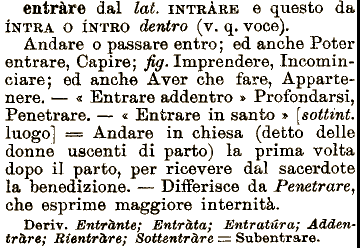 entràre dal lat. INTRÀRE e questo da
ÍNTRA O ÍNTRO dentro (v. q. voce).
Andare o passare entro; ed anche Poter
entrare, Capire; fig. Imprendere, Incomin-
ciare; ed anche Aver che fare, Apparte-
nere. — « Entrare addentro » Profondarsi,
Penetrare. — « Entrare in santo » [sottint.
luogo] = Andare in chiesa (detto delle
donne uscenti di parto) la prima volta
dopo il parto, per ricevere dal sacerdote
la benedizione. — Differisce da Penetrare,
che esprime maggiore internità.
Deriv. Entrànte; Entràta; Entratúra; Adden-
tràre; Rientràre; Sottentràre = Subentrare.